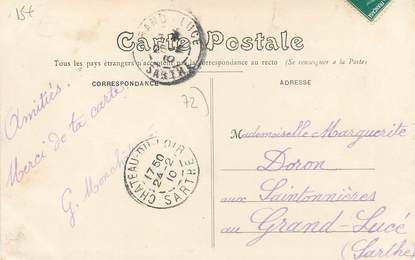 15t
GRAND-LUCÉ
SARTHE
Carte Postale
Tous les pays étrangers n'acceptent pas la correspondance au recto (Se renseigner à la Poste)
CORRESPONDANCE
ADRESSE
Amitiés.
Merci de ta carte
G.
72
CHATEAU-DU-LOIR
17 50
24-2
10
SARTHE
Mademoiselle Marguerite
Doron
aux Saintonnières
au Grand-Lucé
(Sarthe)